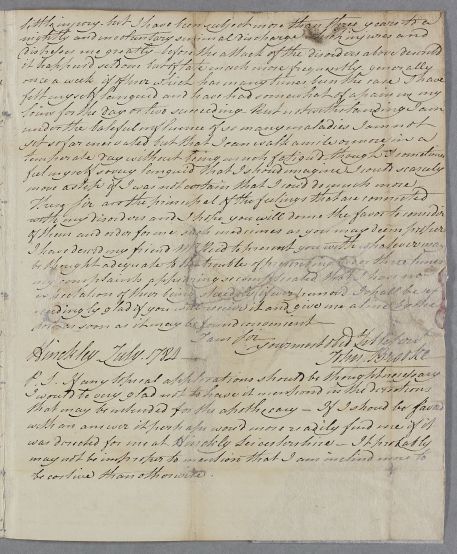 little injury. but I have been subject more than three years to a
nightly and involuntary seminal discharge which injures and
distresses me greatly before the attack of the disorders above
it happen'd seldom but of late much more frequently generally
once a week after which has many times been the case I have
felt myself languid and have had somewhat of a pain in my
loins for the day or two succeeding But notwithstanding I am
under the baleful influence of so many maladies I am not
yet so far enervated but that I can walk a mile or more in a
temperate day without being much fatigued though I sometimes
feel myself so very languid that I should imagine I could scarcely
move a step if I was not certain that I could do much more
These Sir are the principal of the feelings that are connected
with my disorders and I hope you will do me the favor to consider
of them and order for me such medicines as you may deem proper
I have desired my friend to present you with whatever may
be thought adequate to the trouble of
my complaints appearing so complicated that I have no
expectation of their being I shall be
exceedingly glad if you and give me a line
as soon as it may be found convenient
I am Sir
Your most obed.t
Hinckley July 1784 John
P.S. If any topical applications should be thought necessary
I would be very glad not to have it mentioned in the directions
that may be intended for the apothecary — If I should be favor'd
with an answer it perhaps would more readily find me if it
was directed for me at Hinckley Leicestershire — It probably
may not be improper to mention that I am inclined more to
be costive than otherwise.